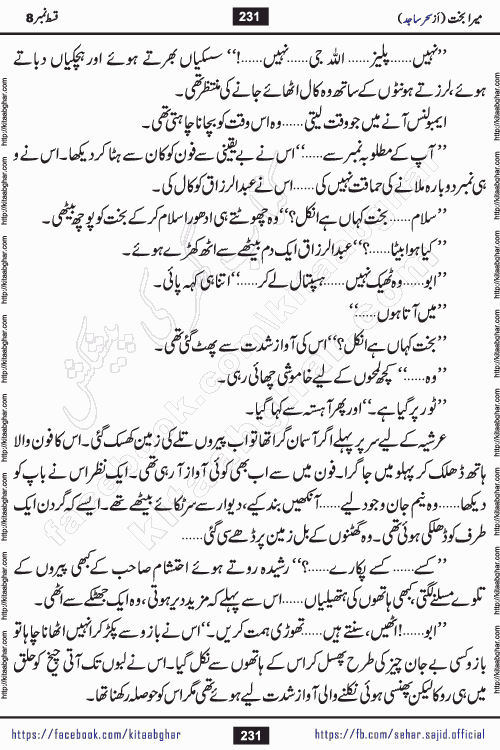 میرا بخت (از سحر ساجد) 231 قسط نمبر 8
”نہیں...... پلیز...... اللہ جی ......نہیں......!“ سسکیاں بھرتے ہوئے اور ہچکیاں دباتے
ہوئے، لرزتے ہونٹوں کے ساتھ وہ کال اٹھائے جانے کی منتظر تھی۔
ایمبولنس آنے میں جو وقت لیتی ......وہ اس وقت کو بچانا چاہتی تھی۔
”آپ کے مطلوبہ نمبر سے......“ اس نے بے یقینی سے فون کو کان سے ہٹا کر دیکھا۔ اس نے و
ہی نمبر دوبارہ ملانے کی حماقت نہیں کی ...... اس نے عبدالرزاق کو کال کی۔
”سلام...... بخت کہاں ہے انکل؟“ وہ چھوٹتے ہی ادھورا سلام کر کے بخت کو پوچھ بیٹھی۔
”کیا ہوا بیٹا......؟“ عبدالرزاق ایک دم بیٹھے سے اٹھ کھڑے ہوئے۔
”ابو......وہ ٹھیک نہیں...... ہسپتال لے کر......“ اتنا ہی کہہ پائی۔
”میں آتا ہوں......“
”بخت کہاں ہے انکل؟“ اس کی آواز شدت سے پھٹ گئی تھی۔
”وہ......“ کچھ لمحوں کے لیے خاموشی چھائی رہی۔
”ٹور پر گیا ہے۔“ اور پھر آہستہ سے کہا گیا۔
عرشیہ کے لیے سر پر پہلے اگر آسمان گرا تھا تو اب پیروں تلے کی زمین کھسک گئی۔ اس کا فون والا
ہاتھ ڈھلک کر پہلو میں جا گرا۔ فون میں سے اب بھی کوئی آواز آ رہی تھی۔ ایک نظر اس نے باپ کو
دیکھا......وہ نیم جان وجود لیے ...... آنکھیں بند کیے، دیوار سے سر ٹکائے بیٹھے تھے۔ ایسے کہ گردن ایک
طرف کو ڈھلکی ہوئی تھی۔ وہ گھٹنوں کے بل زمین پر ڈھے سی گئی......
”کسے...... کسے پکارے......؟“ رشیدہ روتے ہوئے احتشام صاحب کے کبھی پیروں کے
تلوے مسلنے لگتی، کبھی ہاتھوں کی ہتھیلیاں......اس سے پہلے کہ مزید دیر ہوتی، وہ ایک جھٹکے سے اٹھی۔
”ابو......!اٹھیں، سنتے ہیں...... تھوڑی ہمت کریں۔“ اس نے بازو سے پکڑ کر انہیں اٹھانا چاہا تو
بازو کسی بے جان چیز کی طرح پھسل کر اس کے ہاتھوں سے نکل گیا۔ اس نے لبوں تک آتی چیخ کو حلق
میں ہی روکا لیکن پھنسی ہوئی نکلنے والی آواز شدت لیے ہوئے تھی مگر اس کو حوصلہ رکھنا تھا۔
https://facebook.com/kitaabghar 231 https://fb.com/sehar.sajid.official
http://kitaabghar.com